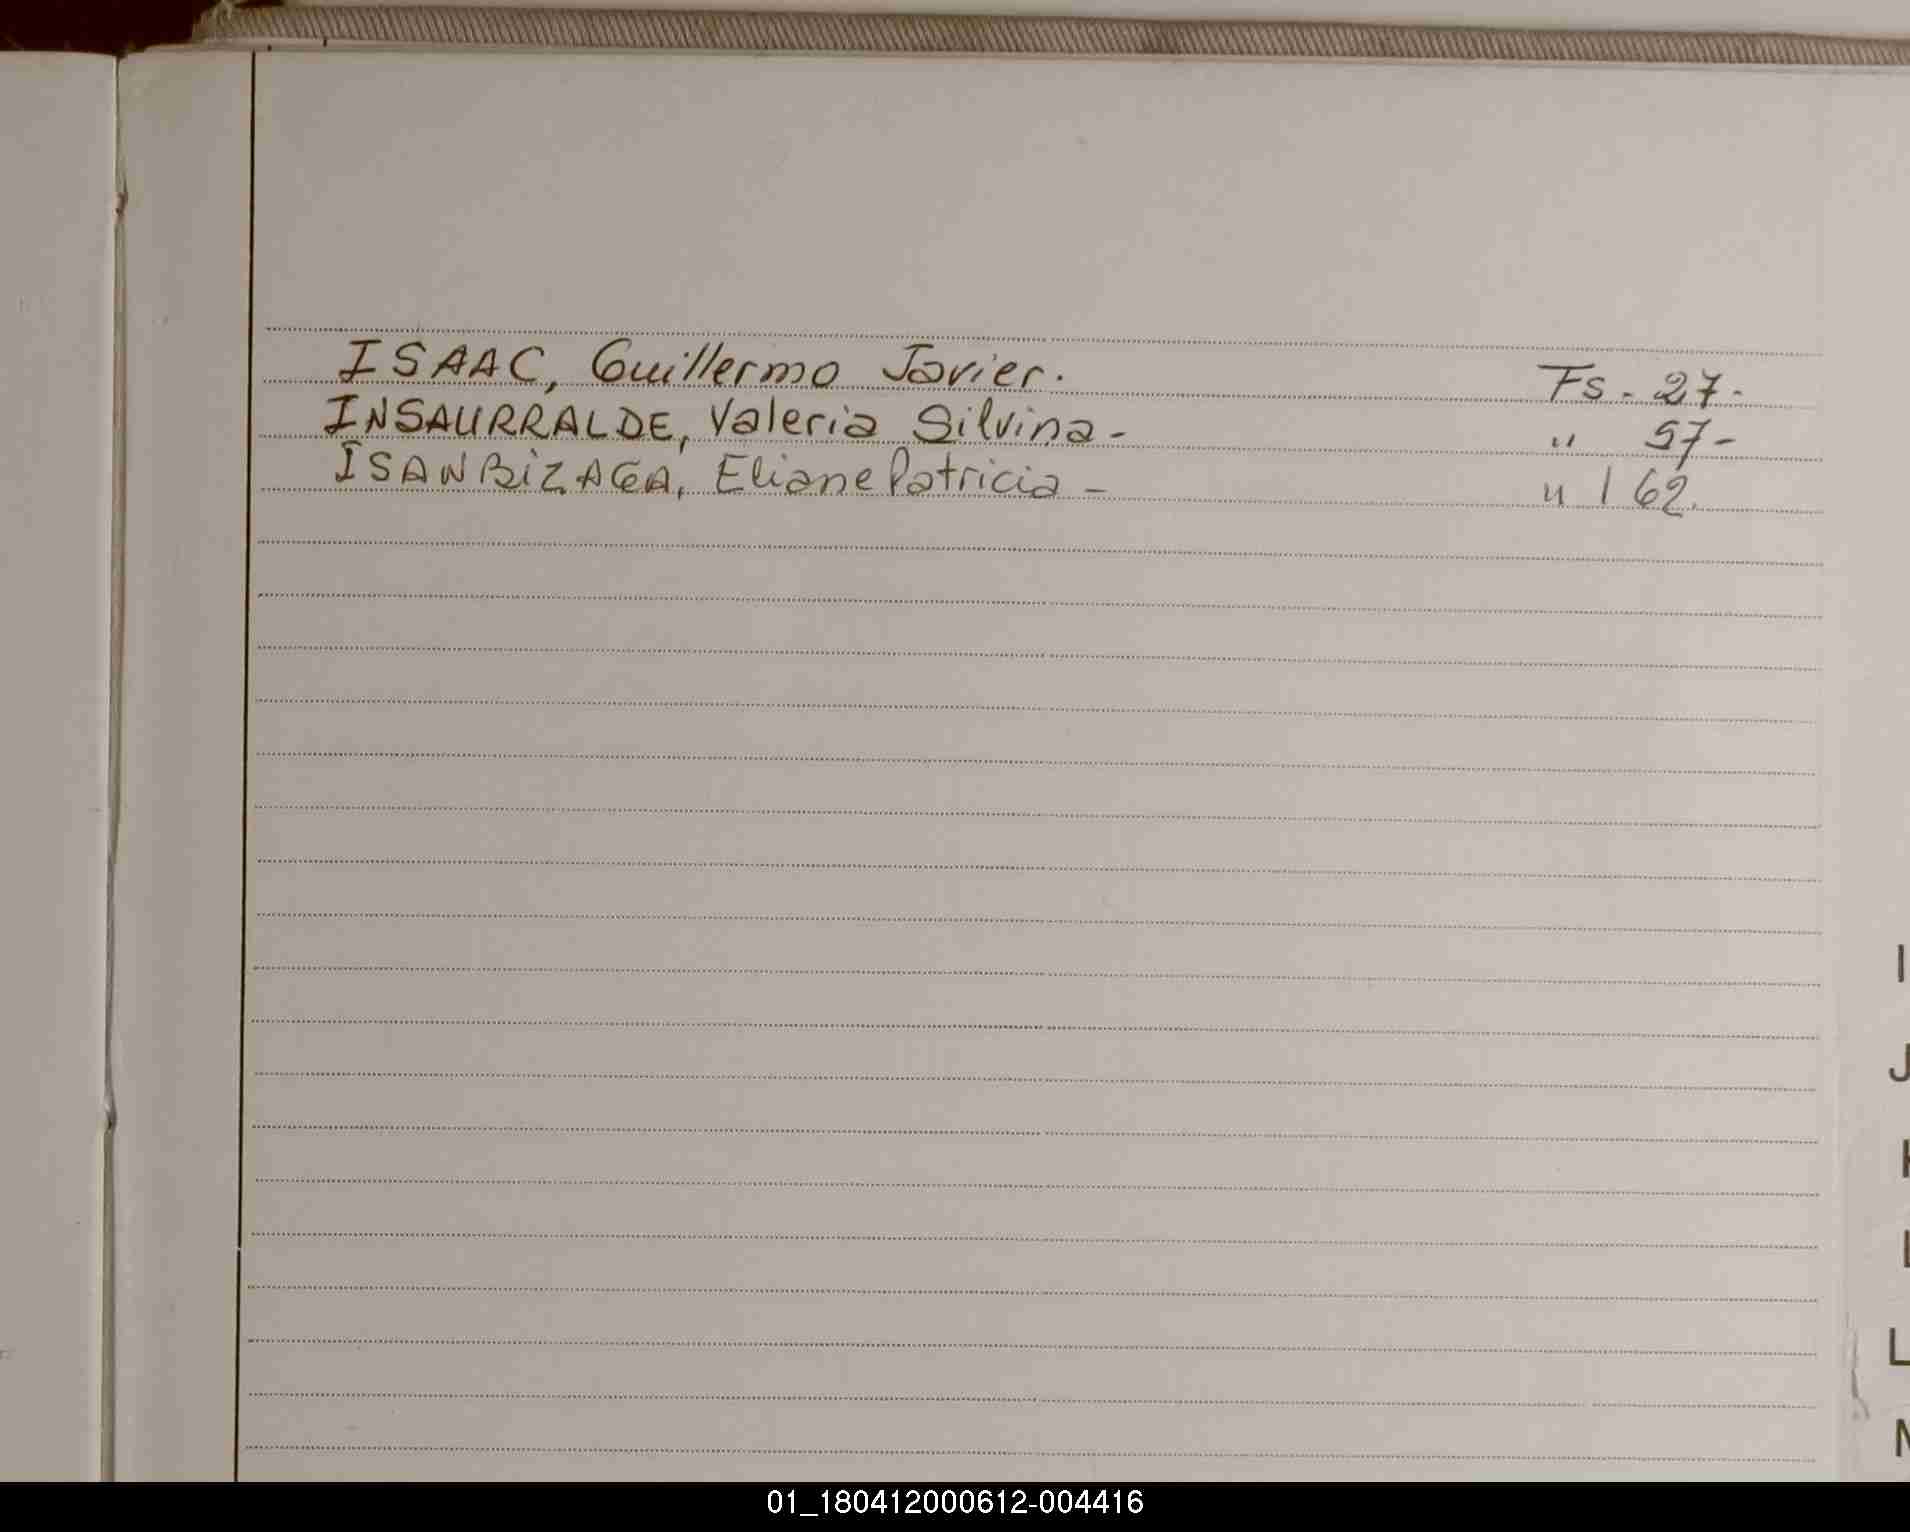 ISAAC, Guillermo Javier. Fs. 27-
INSAURRALDE, Valeria Silvina- " 57-
ISANBIZAGA, Eliane Patricia - " 162.
I
J
K
L
L
01_180412000612-004416